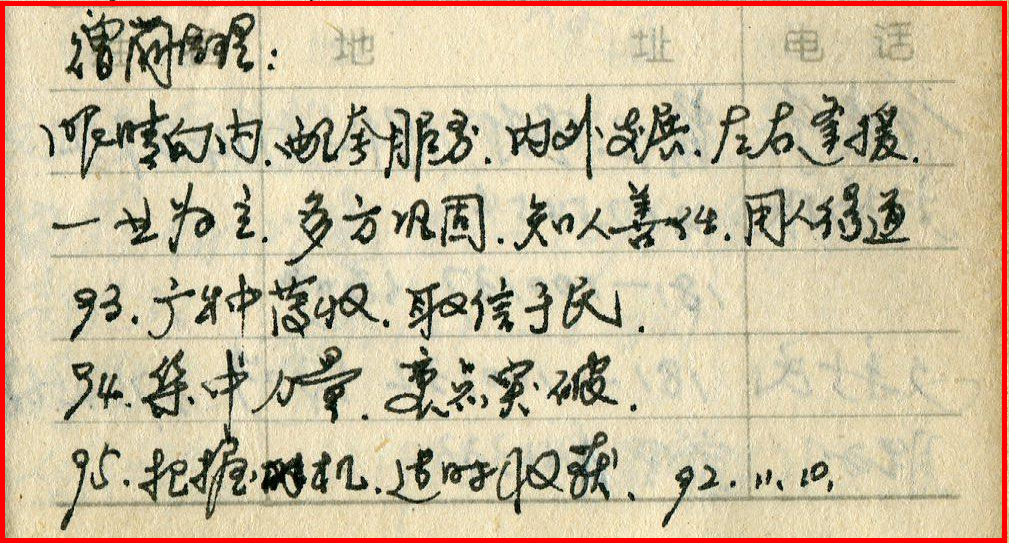 地 址 电 话
经理:
眼睛向内.配套服务.内外发展.左右逢援.
一业为主.多方巩固.知人善任.用人得道
93.广种薄收.取信于民.
94.集中力量.重点突破.
95.把握时机.适时收获. 92.11.10.